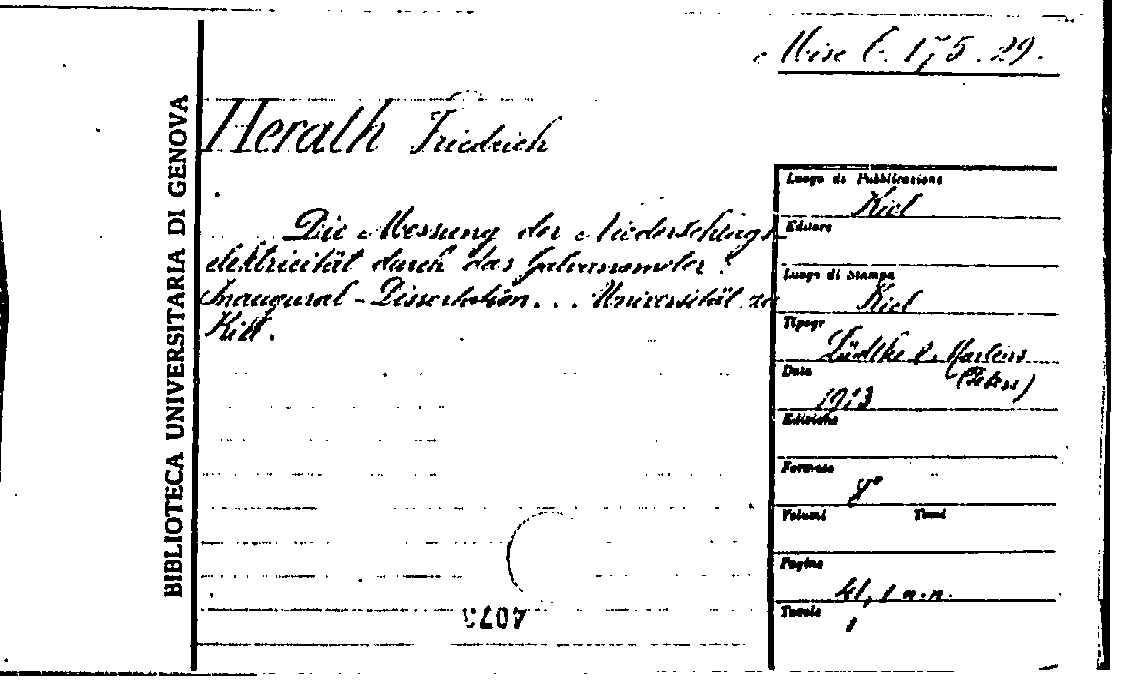 Misc C. 175. 29.
BIBLIOTECA UNIVERSITARIA DI GENOVA
Herath Friedrich
Die Messung der Niederschlags-
elektricität durch das Galvanometer.
Inaugural-Dissertation... Universität zu
Kiel.
Luogo di Pubblicazione
Kiel
Editore
Luogo di Stampa
Kiel
Tipogr
Lüdtke & Martens
Data
1913
Edizione
Formato
8°
Volumi Tomi
Pagine
41, 1 n.n.
Tavole
1